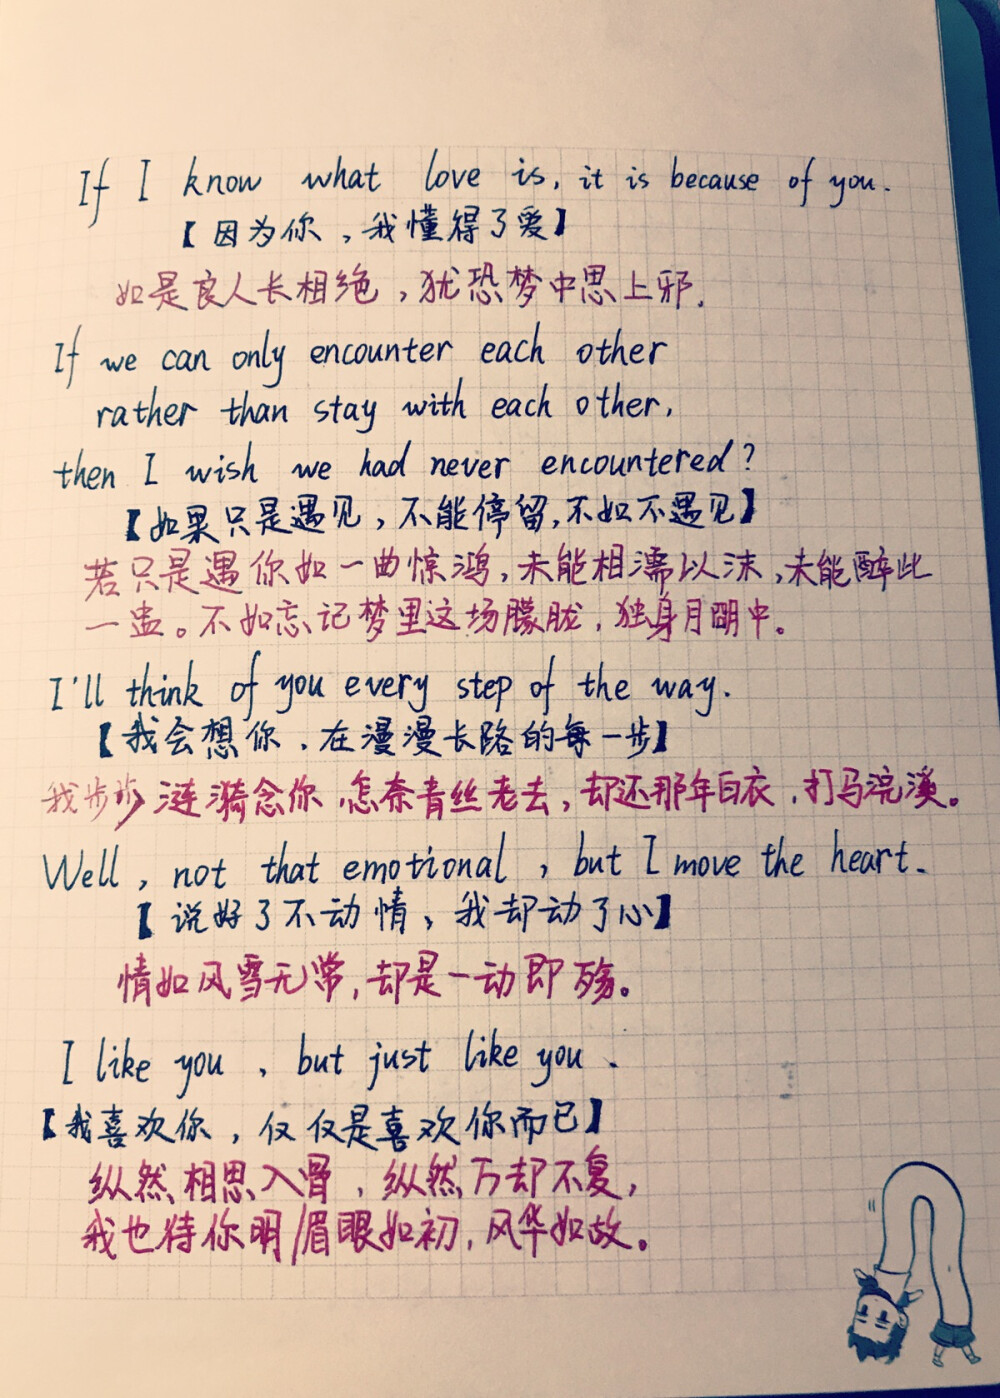 If I know what love is, it is because of you.
【因为你，我懂得了爱】
如是良人长相绝，犹恐梦中思上邪.
If we can only encounter each other
rather than stay with each other,
then I wish we had never encountered?
【如果只是遇见，不能停留,不如不遇见】
若只是遇你如一曲惊鸿,未能相濡以沫,未能醉此
一盅。不如忘记梦里这场朦胧,独身月明中。
I'll think of you every step of the way.
【我会想你，在漫漫长路的每一步】
我步步涟漪念你,怎奈青丝老去,却还那年白衣,打马浣溪。
Well, not that emotional, but I move the heart.
【说好了不动情，我却动了心】
情如风雪无常,却是一动即殇。
I like you, but just like you.
【我喜欢你，仅仅是喜欢你而已】
纵然相思入骨,纵然万却不复,
我也待你明眉眼如初,风华如故。